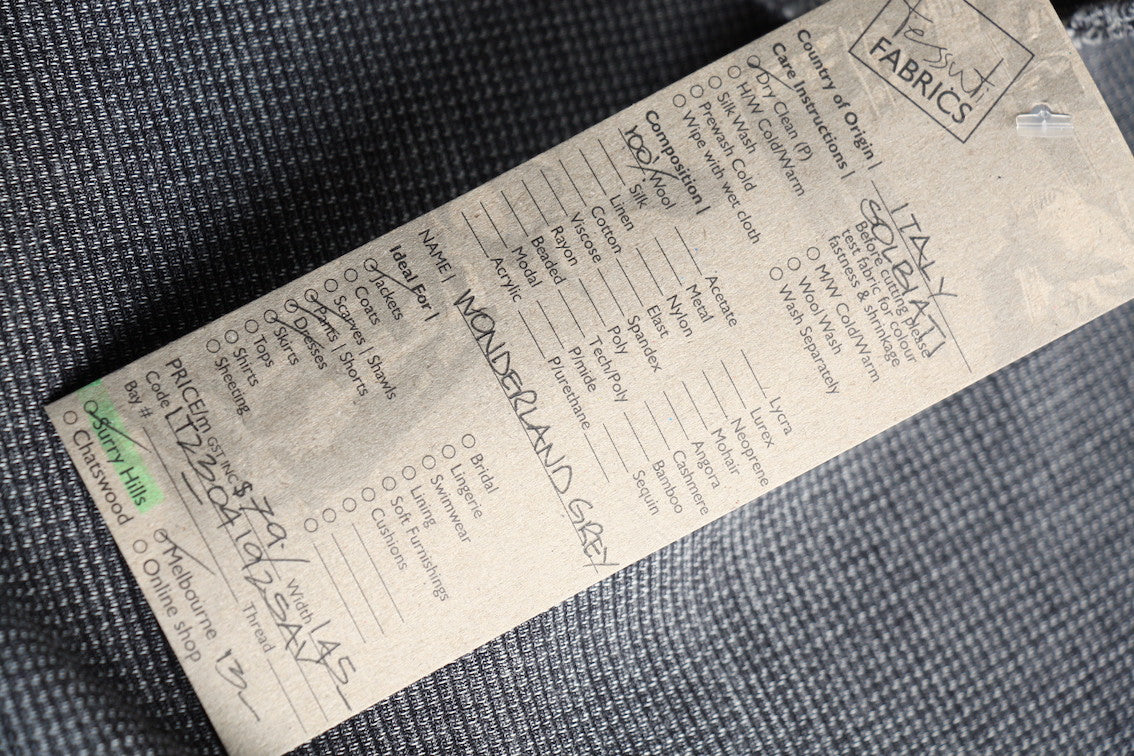 Tessuti
FABRICS
Country of Origin | ITALY
SOLBIATI
Care Instructions | Before cutting please
test fabric for colour
fastness & shrinkage
Dry Clean (P)
H/W Cold/Warm
Silk Wash
Prewash Cold
Wipe with wet cloth
M/W Cold/Warm
Wool Wash
Wash Separately
Composition |
100% Wool
Silk
Linen
Cotton
Viscose
Rayon
Beaded
Modal
Acrylic
Acetate
Metal
Nylon
Elast
Spandex
Poly
Tech/Poly
P/mide
P/urethane
Lycra
Lurex
Neoprene
Mohair
Angora
Cashmere
Bamboo
Sequin
NAME | WONDERLAND GREY
Ideal For |
Jackets
Coats
Scarves | Shawls
Pants | Shorts
Dresses
Skirts
Tops
Shirts
Sheeting
Bridal
Lingerie
Swimwear
Lining
Soft Furnishings
Cushions
PRICE/m GST INC $79./ Width 145
Code
Bay # Thread
Surry Hills
Chatswood
Melbourne
Online shop